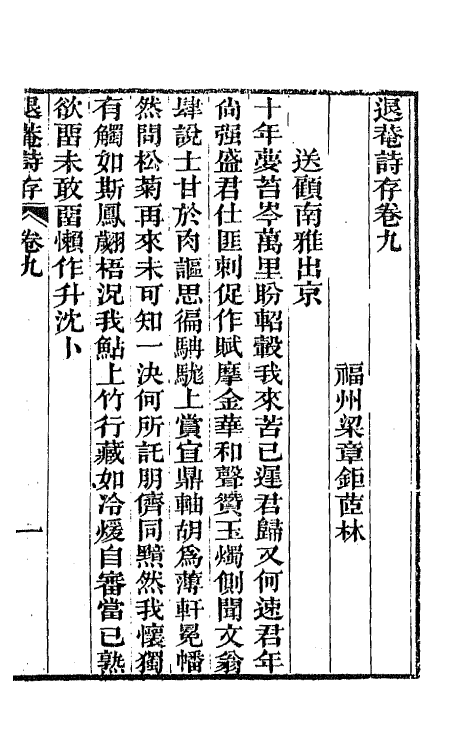 退菴詩存卷九
福州梁章鉅茝林
送顧南雅出京
十年夢苔岑萬里盼軺轂我來苦已遲君歸又何速君年
尚强盛君仕匪刺促作賦摩金華和聲贊玉燭側聞文翁
肆說士甘於肉謳思徧駉駹上賞宜鼎軸胡爲薄軒冕幡
然問松菊再來未可知一決何所託朋儕同黯然我懷獨
有觸如斯鳳翽梧況我鮎上竹行藏如冷煖自審當已熟
欲畱未敢畱懶作升沈卜
退菴詩存
卷九
一